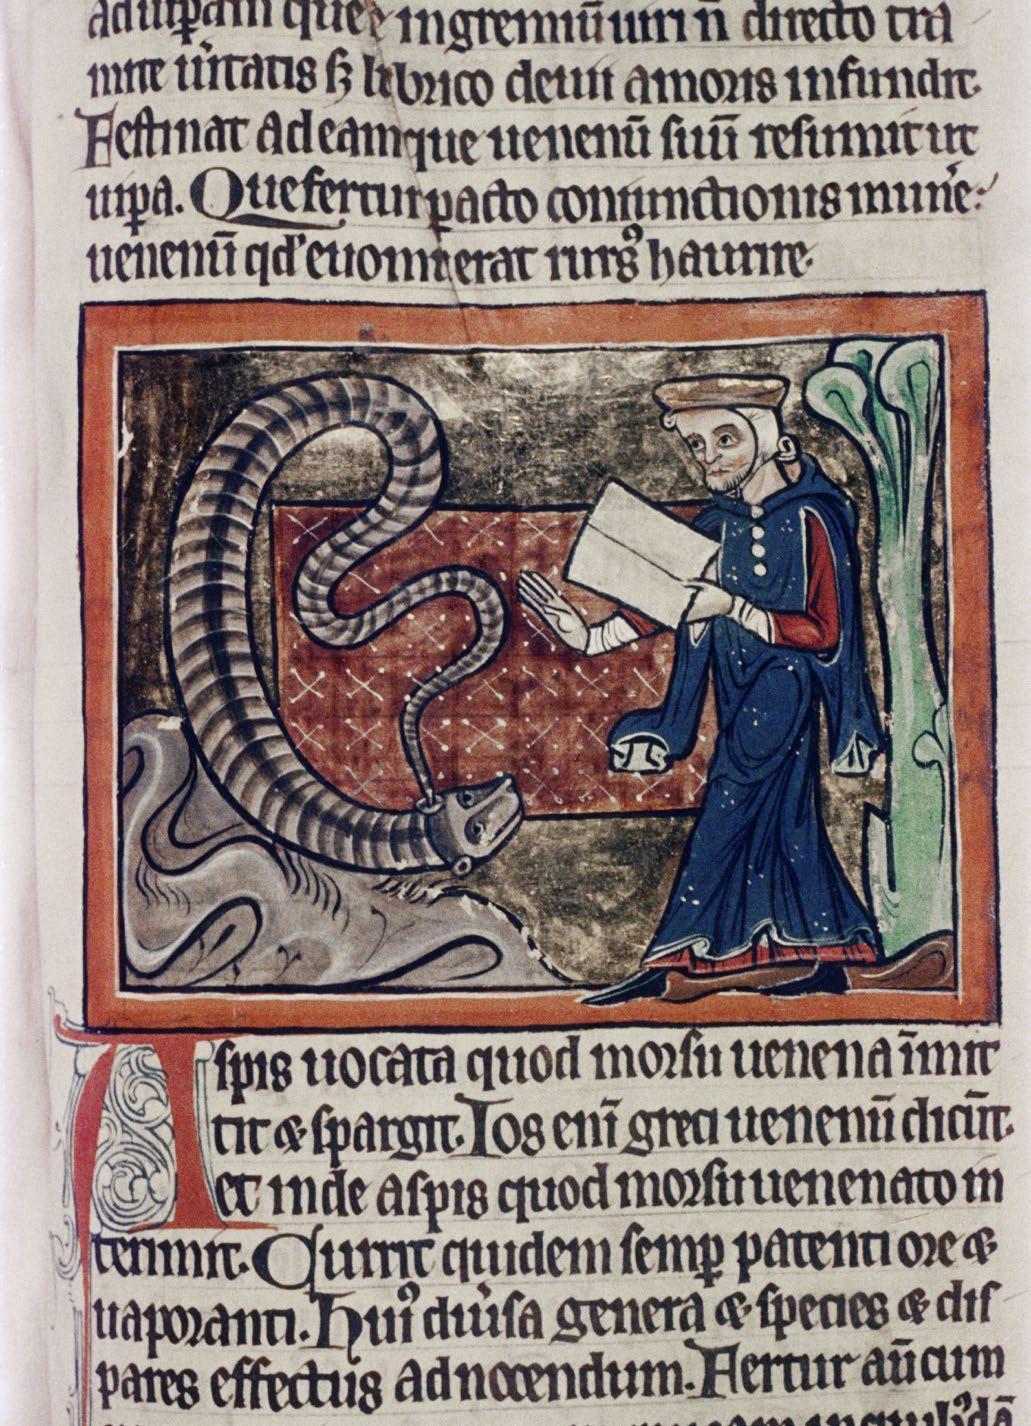 ad uip̱am que in gremiiū uiri n̄ directo tra
mite ueritatis sȝ lubrico deuii amoris infundit.
Festinat ad eamque uenenū suū resumit ut
uip̱a. Que fertur pacto coniunctionis munere
uenenū qd' euomerat rursꝰ haurire.
Aspis uocata quod morsu uenena īmit
tit & spargit. Ios enī greci uenenū dicūt.
et inde aspis quod morsu uenenato in
terimit. Currit quidem semꝑ patenti ore &
uaporanti. Huiꝰ diuersa genera & species & dis
pares effectus ad nocendum. Fertur aūt cum